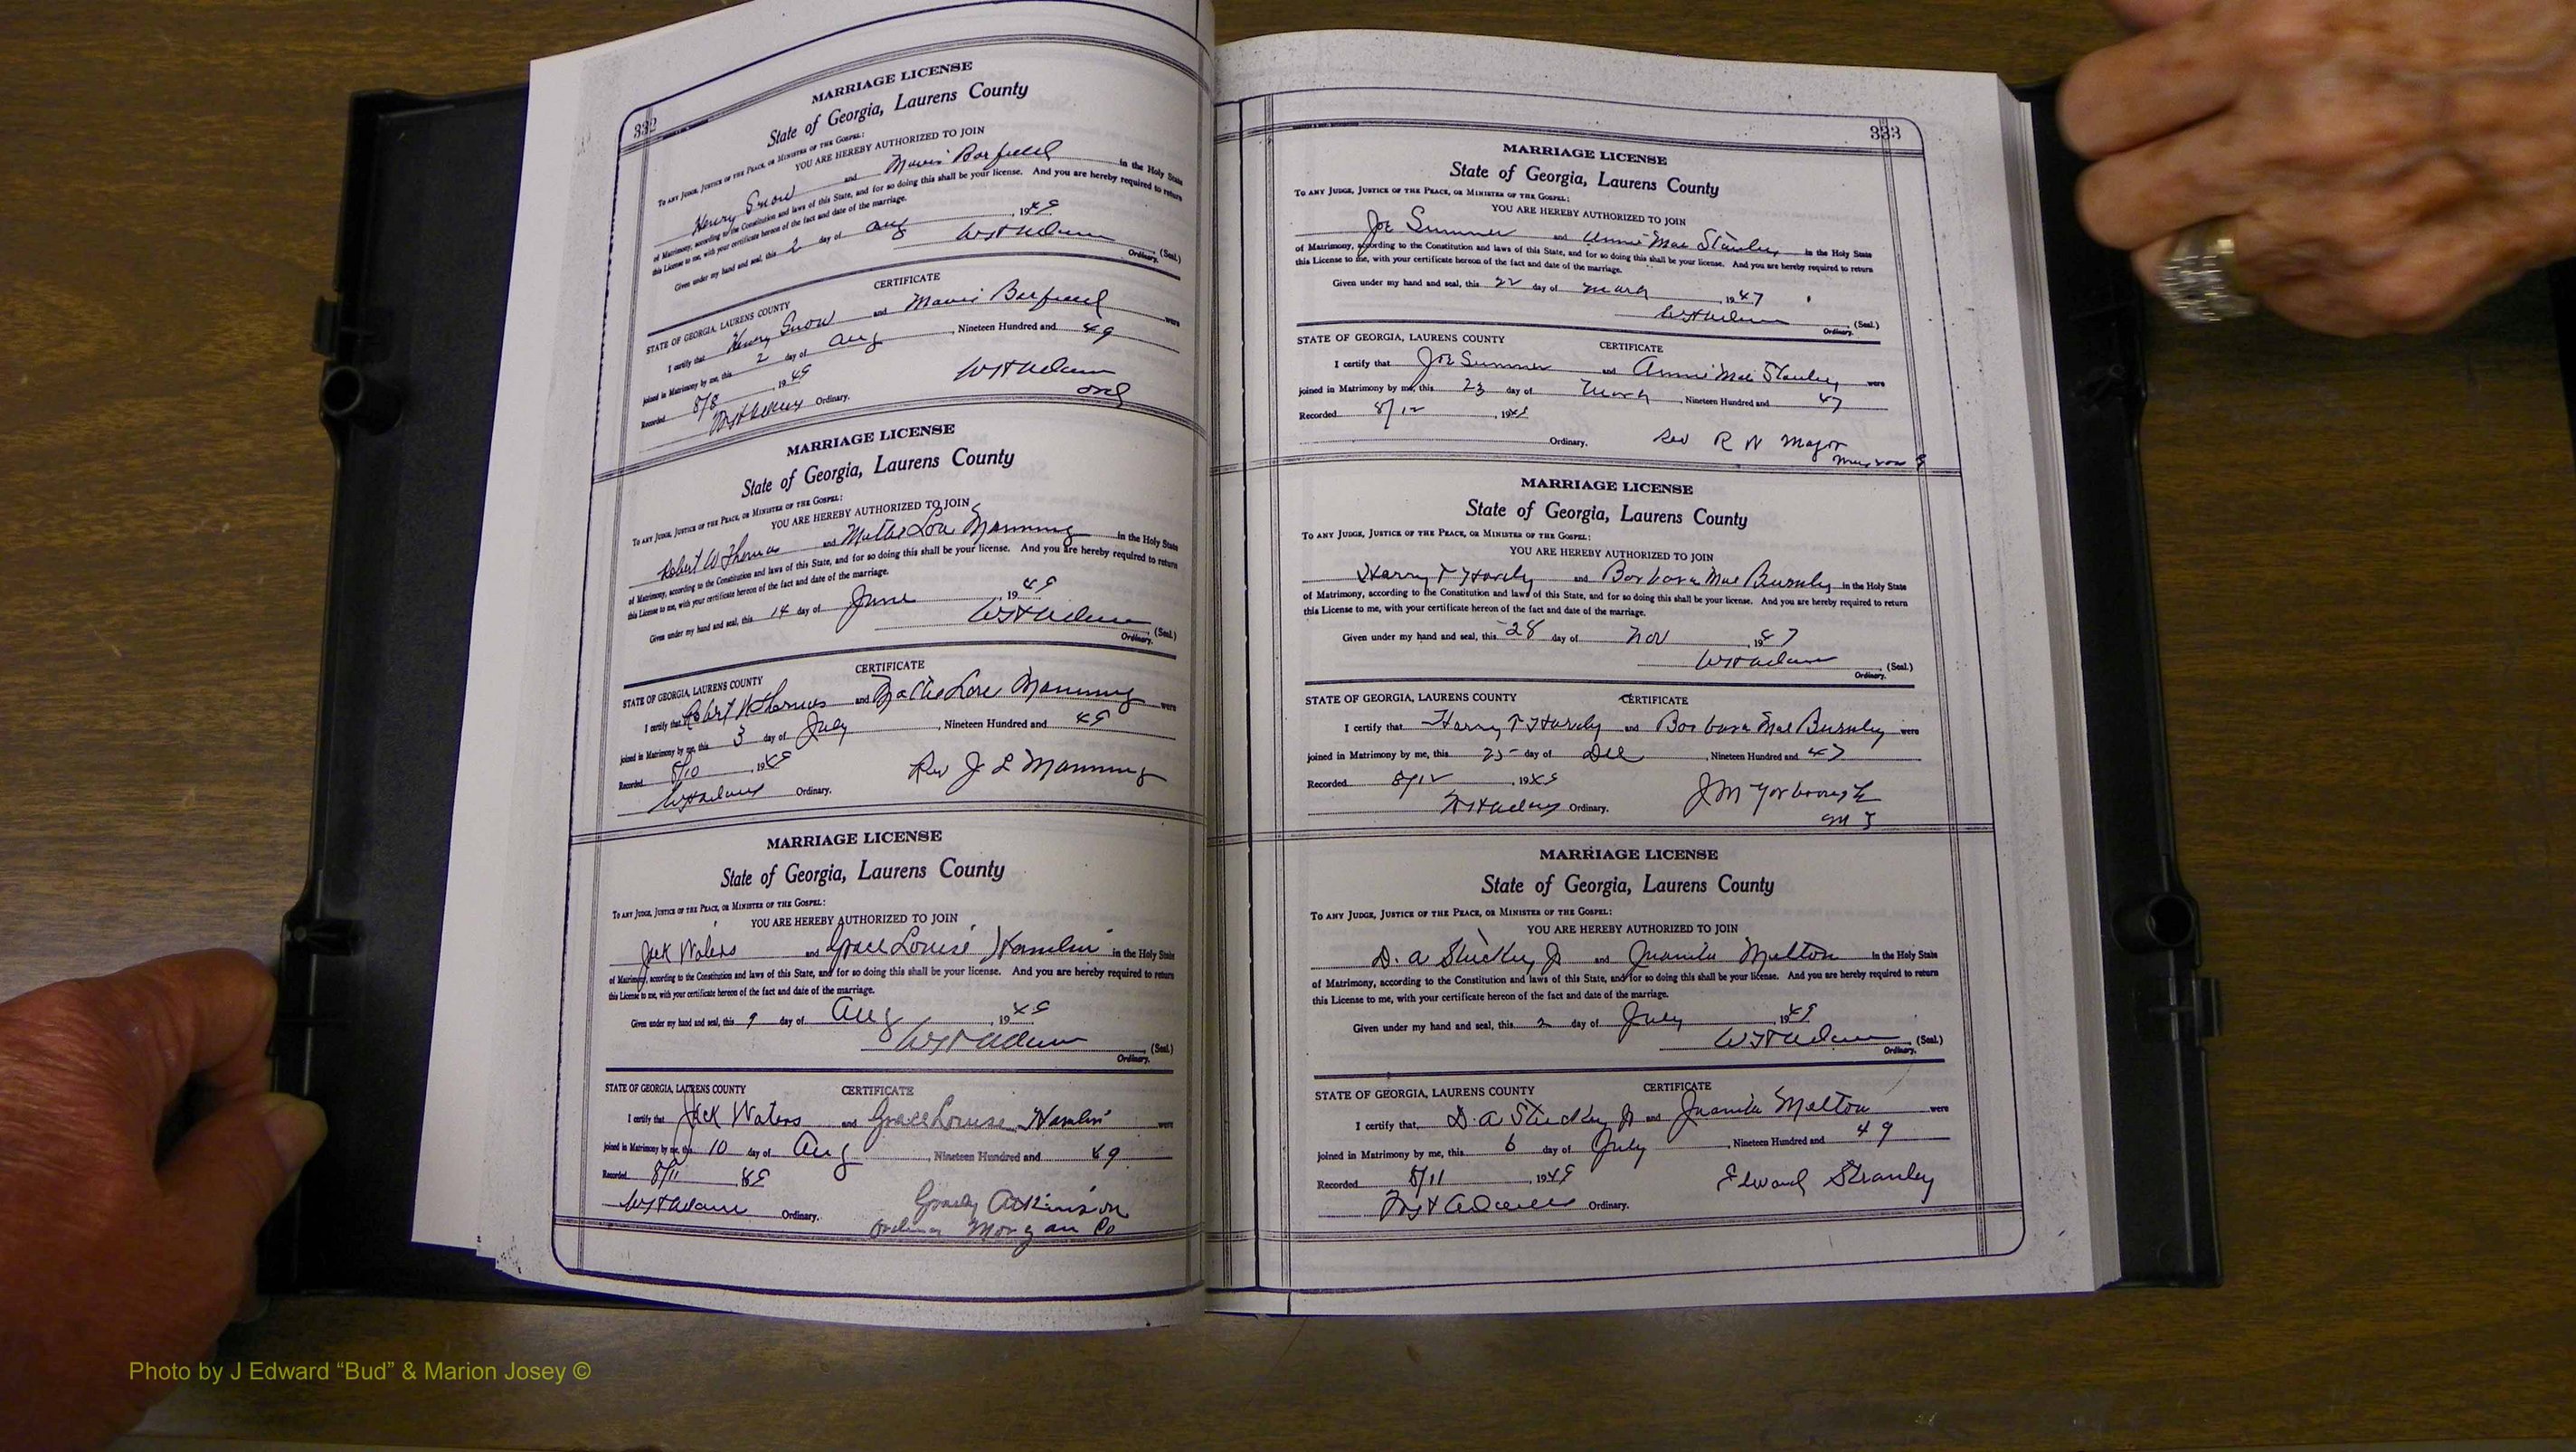 332
MARRIAGE LICENSE
State of Georgia, Laurens County
TO ANY JUDGE, JUSTICE OF THE PEACE, OR MINISTER OF THE GOSPEL:
YOU ARE HEREBY AUTHORIZED TO JOIN
Henry Snow and Mavis Barfield in the Holy State
of Matrimony, according to the Constitution and laws of this State, and for so doing this shall be your license. And you are hereby required to return
this License to me, with your certificate hereon of the fact and date of the marriage.
Given under my hand and seal, this 2 day of Aug, 1949
(Seal.)
Ordinary.
STATE OF GEORGIA, LAURENS COUNTY CERTIFICATE
I certify that Henry Snow and Mavis Barfield were
joined in Matrimony by me, this 2 day of Aug, Nineteen Hundred and 49
Recorded 8/8, 1949
Ordinary.
MARRIAGE LICENSE
State of Georgia, Laurens County
TO ANY JUDGE, JUSTICE OF THE PEACE, OR MINISTER OF THE GOSPEL:
YOU ARE HEREBY AUTHORIZED TO JOIN
Robert W Thomas and Lou Manning in the Holy State
of Matrimony, according to the Constitution and laws of this State, and for so doing this shall be your license. And you are hereby required to return
this License to me, with your certificate hereon of the fact and date of the marriage.
Given under my hand and seal, this 14 day of June, 1949
(Seal.)
Ordinary.
STATE OF GEORGIA, LAURENS COUNTY CERTIFICATE
I certify that Robert W Thomas and Manning were
joined in Matrimony by me, this 3 day of July, Nineteen Hundred and 49
Recorded 8/10, 1949 Rev J L Manning
Ordinary.
MARRIAGE LICENSE
State of Georgia, Laurens County
TO ANY JUDGE, JUSTICE OF THE PEACE, OR MINISTER OF THE GOSPEL:
YOU ARE HEREBY AUTHORIZED TO JOIN
Jack Waters and Grace Louise Hamlin in the Holy State
of Matrimony, according to the Constitution and laws of this State, and for so doing this shall be your license. And you are hereby required to return
this License to me, with your certificate hereon of the fact and date of the marriage.
Given under my hand and seal, this 9 day of Aug, 1949
(Seal.)
Ordinary.
STATE OF GEORGIA, LAURENS COUNTY CERTIFICATE
I certify that Jack Waters and Grace Louise Hamlin were
joined in Matrimony by me, this 10 day of Aug, Nineteen Hundred and 49
Recorded 8/11, 49
Ordinary. Grady Atkinson
Morgan Co
333
MARRIAGE LICENSE
State of Georgia, Laurens County
TO ANY JUDGE, JUSTICE OF THE PEACE, OR MINISTER OF THE GOSPEL:
YOU ARE HEREBY AUTHORIZED TO JOIN
Joe Summer and Annie Mae Stanley in the Holy State
of Matrimony, according to the Constitution and laws of this State, and for so doing this shall be your license. And you are hereby required to return
this License to me, with your certificate hereon of the fact and date of the marriage.
Given under my hand and seal, this 22 day of March, 1947
(Seal.)
Ordinary.
STATE OF GEORGIA, LAURENS COUNTY CERTIFICATE
I certify that Joe Summer and Annie Mae Stanley were
joined in Matrimony by me, this 23 day of March, Nineteen Hundred and 47
Recorded 8/12, 1949
Ordinary. Rev R N Major
MARRIAGE LICENSE
State of Georgia, Laurens County
TO ANY JUDGE, JUSTICE OF THE PEACE, OR MINISTER OF THE GOSPEL:
YOU ARE HEREBY AUTHORIZED TO JOIN
Harry T Hardy and Barbara Mae Burnley in the Holy State
of Matrimony, according to the Constitution and laws of this State, and for so doing this shall be your license. And you are hereby required to return
this License to me, with your certificate hereon of the fact and date of the marriage.
Given under my hand and seal, this 28 day of Nov, 1947
(Seal.)
Ordinary.
STATE OF GEORGIA, LAURENS COUNTY CERTIFICATE
I certify that Harry T Hardy and Barbara Mae Burnley were
joined in Matrimony by me, this 25 day of Dec, Nineteen Hundred and 47
Recorded 8/12, 1949
Ordinary. J M Yorbrough
M G
MARRIAGE LICENSE
State of Georgia, Laurens County
TO ANY JUDGE, JUSTICE OF THE PEACE, OR MINISTER OF THE GOSPEL:
YOU ARE HEREBY AUTHORIZED TO JOIN
D. A Stuckey Jr and Juanita Melton in the Holy State
of Matrimony, according to the Constitution and laws of this State, and for so doing this shall be your license. And you are hereby required to return
this License to me, with your certificate hereon of the fact and date of the marriage.
Given under my hand and seal, this 2 day of July, 1949
(Seal.)
Ordinary.
STATE OF GEORGIA, LAURENS COUNTY CERTIFICATE
I certify that, D. A Stuckey Jr and Juanita Melton were
joined in Matrimony by me, this 6 day of July, Nineteen Hundred and 49
Recorded 8/11, 1949 Edward Stranley
Ordinary.
Photo by J Edward “Bud” & Marion Josey ©